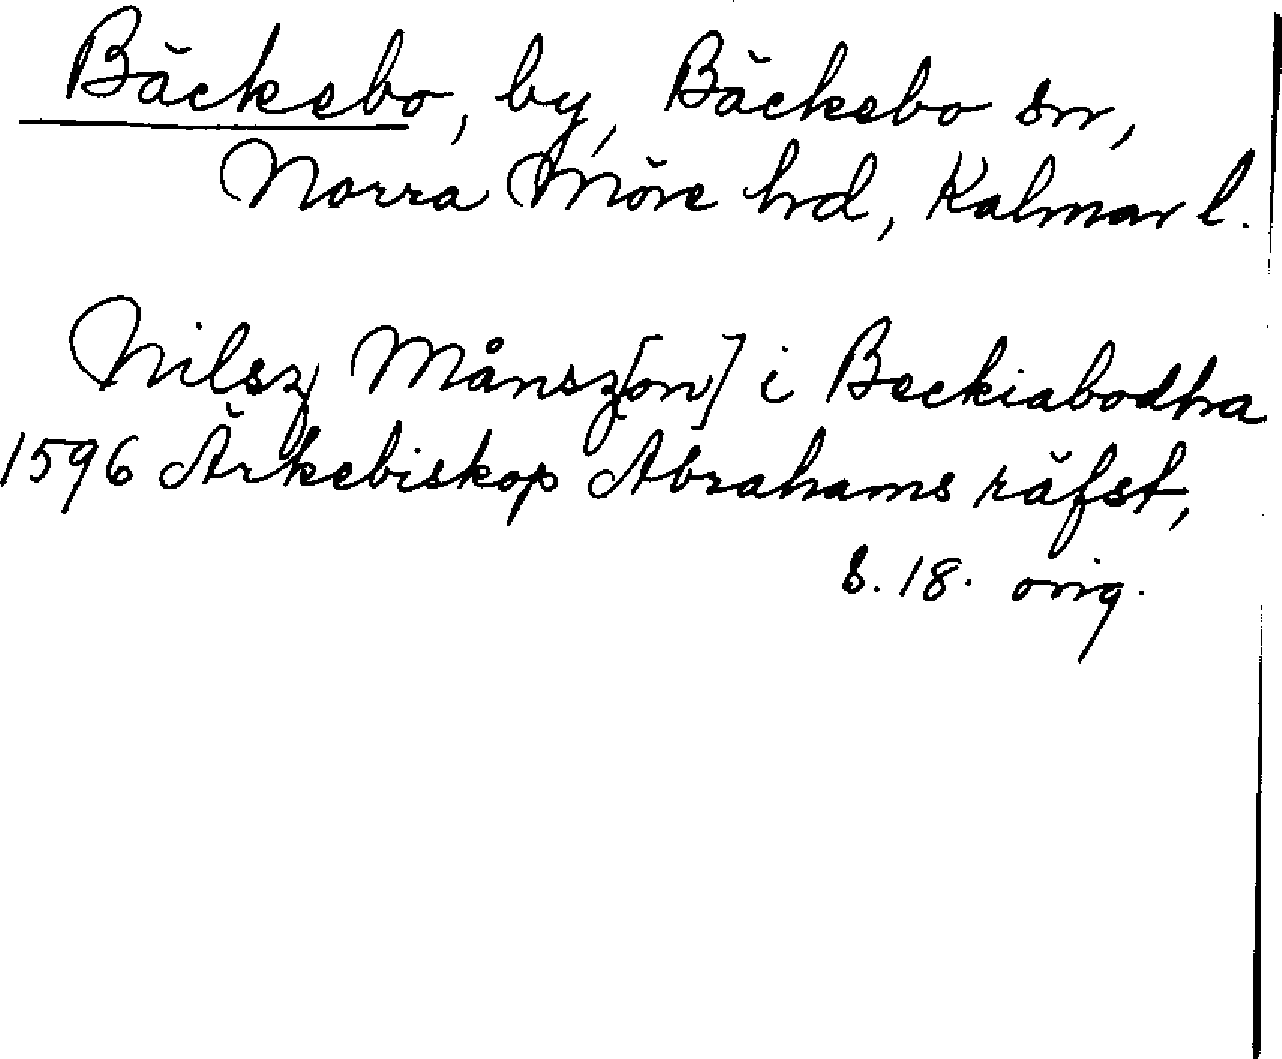 Bäckebo, by, Bäckebo sn,
Norra Möre hd, Kalmar l.
Nilsz Månsz[on] i Beckiabodha
1596 Ärkebiskop Abrahams räfst,
s. 18. orig.